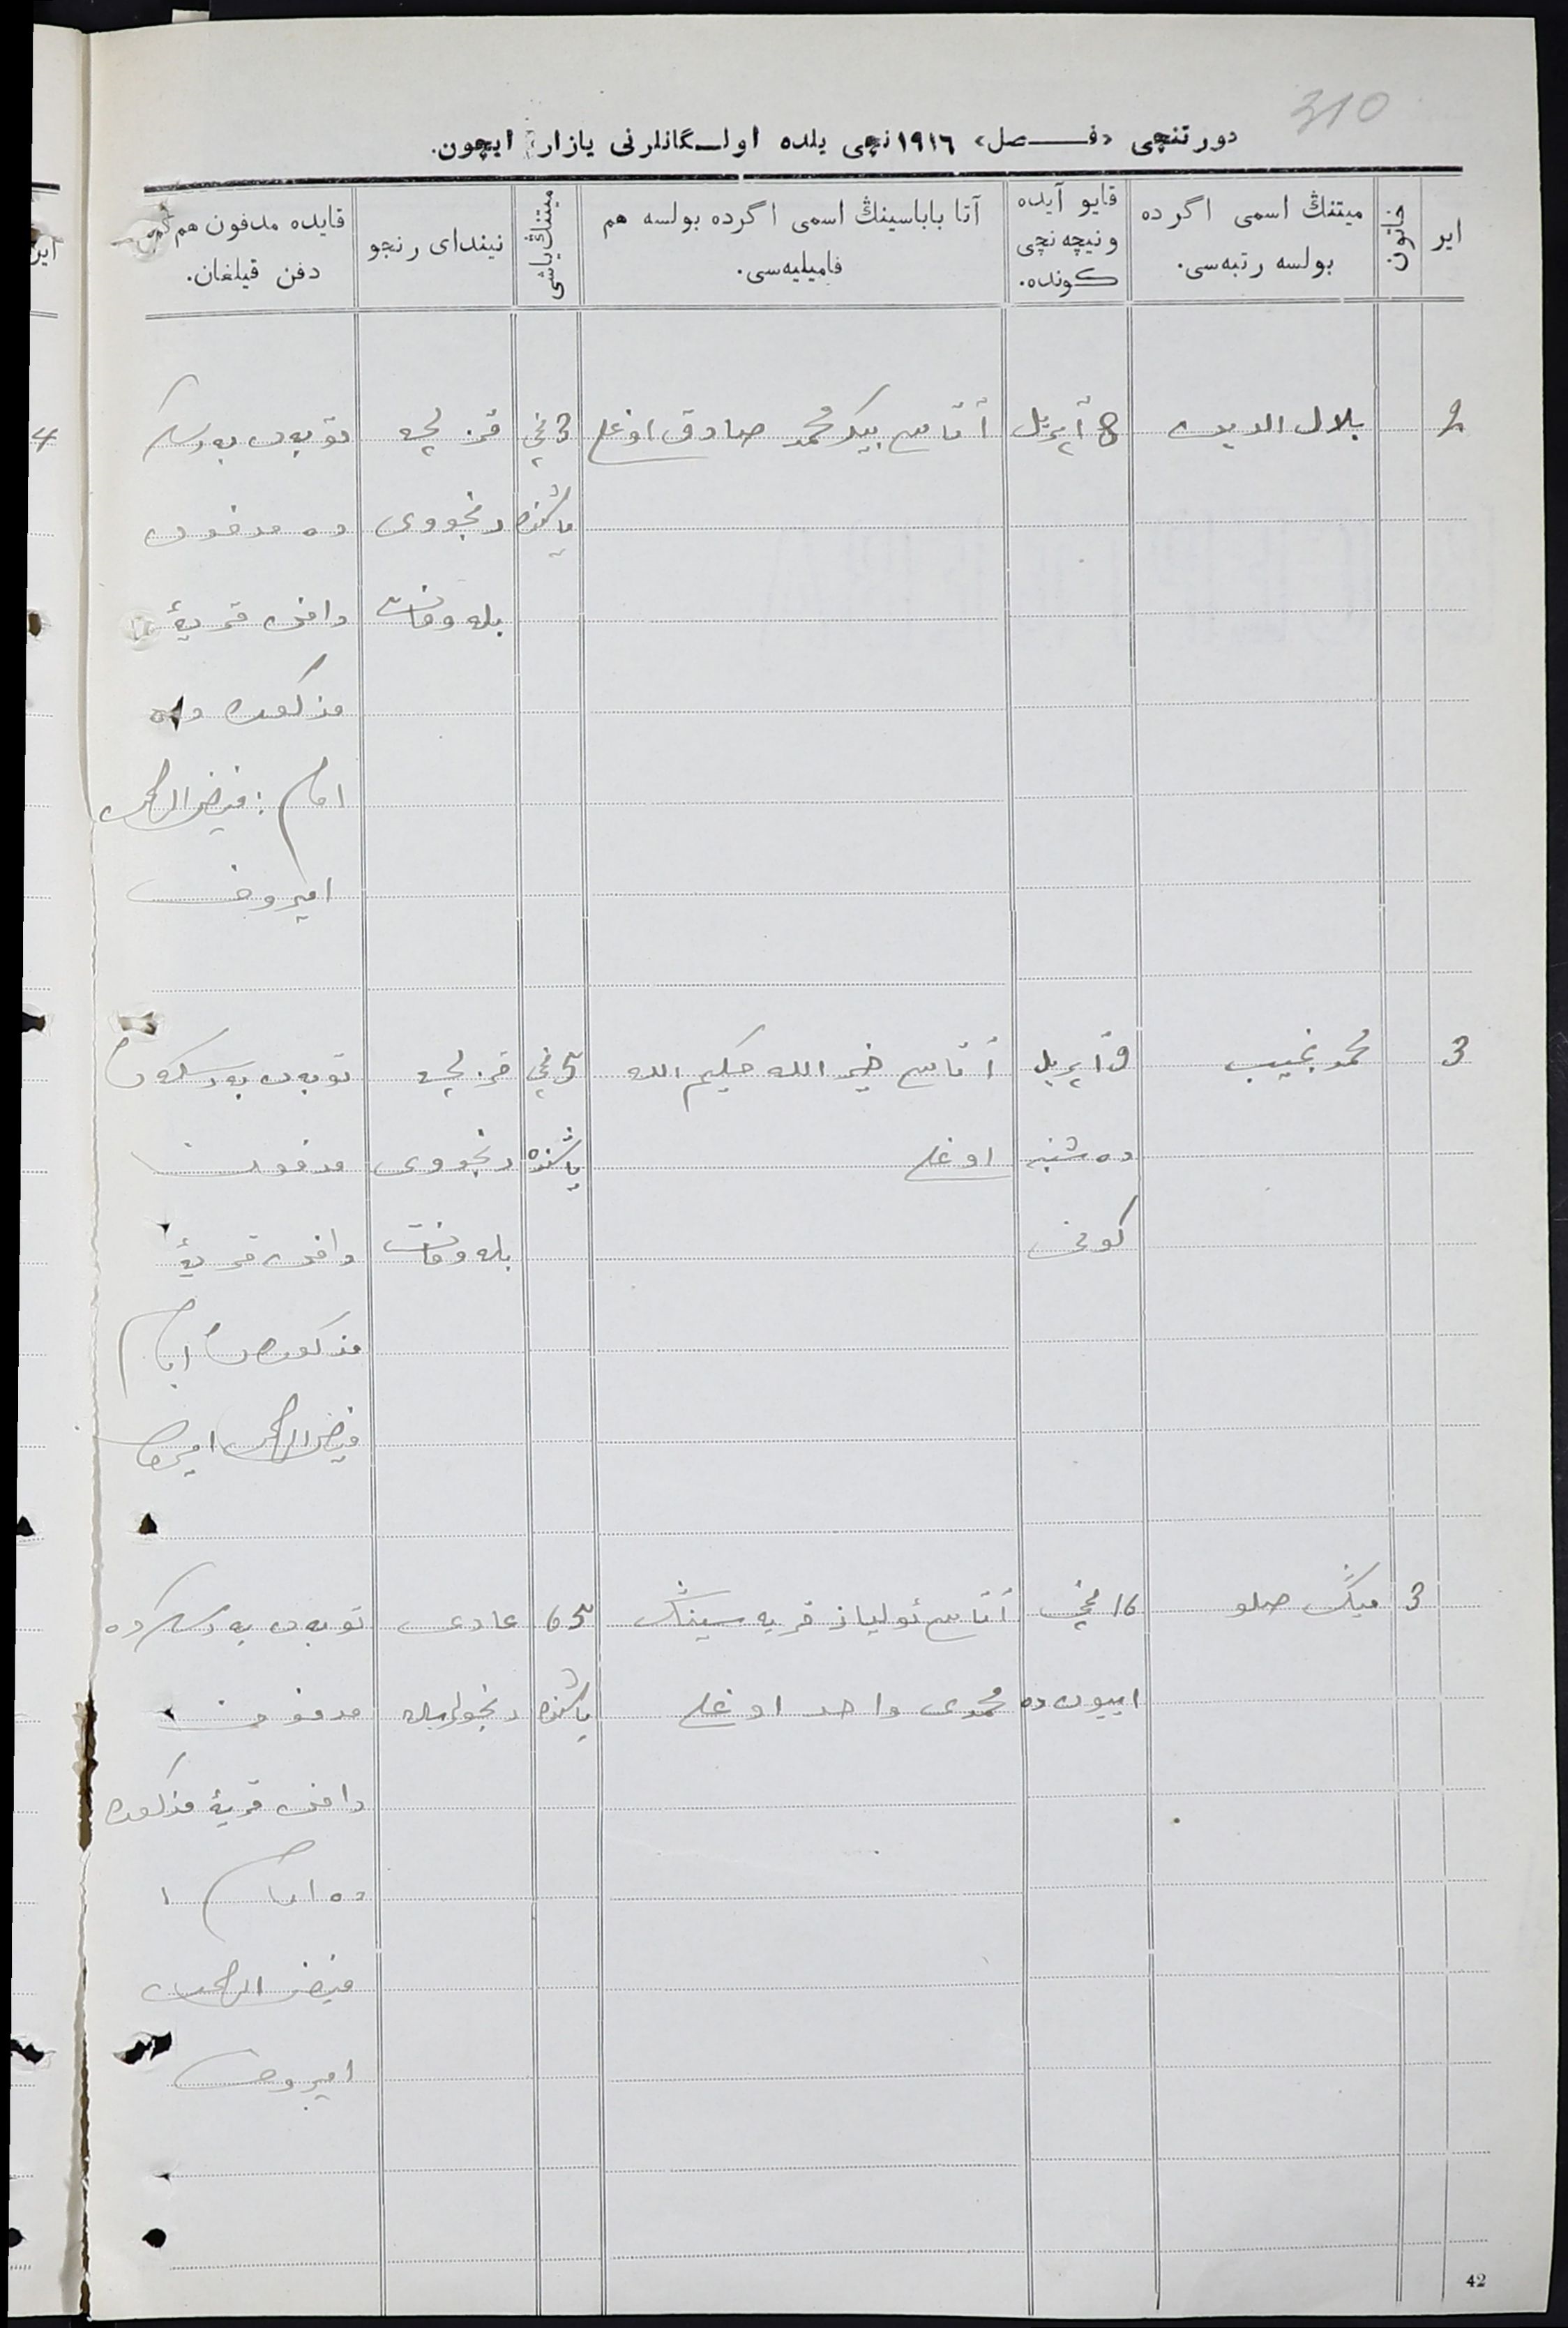 310
دورتنچی «فـــصل» ١٩١٦ نچی یلده اولـگانلرنی یازار ایچون.
ایر
خاتون
میتننڭ اسمی اگرده
بولسه رتبه‌سی.
قایو آیده
و نیچه نچی
کونده.
آتا باباسینڭ اسمی اگرده بولسه هم
فامیلیه‌سی.
میتننڭ یاشی
نیندای رنجو
قایده مدفون هم کم
دفن قیلغان.
2
بلال الدین
8 آپریل
آتاسی بیکمحمد صادق اوغلی
3 نچی
یاشنده
قزلچه
رنجووی
بله وفات
ده مدفون
دافن قریهٔ
مذکوره ده
امام: فیض الرحمن
امیروف
3
محمد نجیب
9 آپریل
ده شنبه
کونی
آتاسی خیر الله حکیم الله
اوغلی
5 نچی
یاشنده
قزلچه
رنجووی
بله وفات
مدفون
دافن قریهٔ
مذکوره امام
فیض الرحمن امیروف
3
مینگ صلو
16 نچی
اییون ده
آتاسی قریه سینڭ
محمدی واحد اوغلی
65
یاشنده
عادی
رنجو بله
مدفون
دافن قریهٔ مذکوره
ده امام
فیض الرحمن
امیروف
42
4